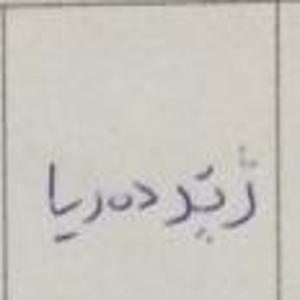 ژێر دەریا